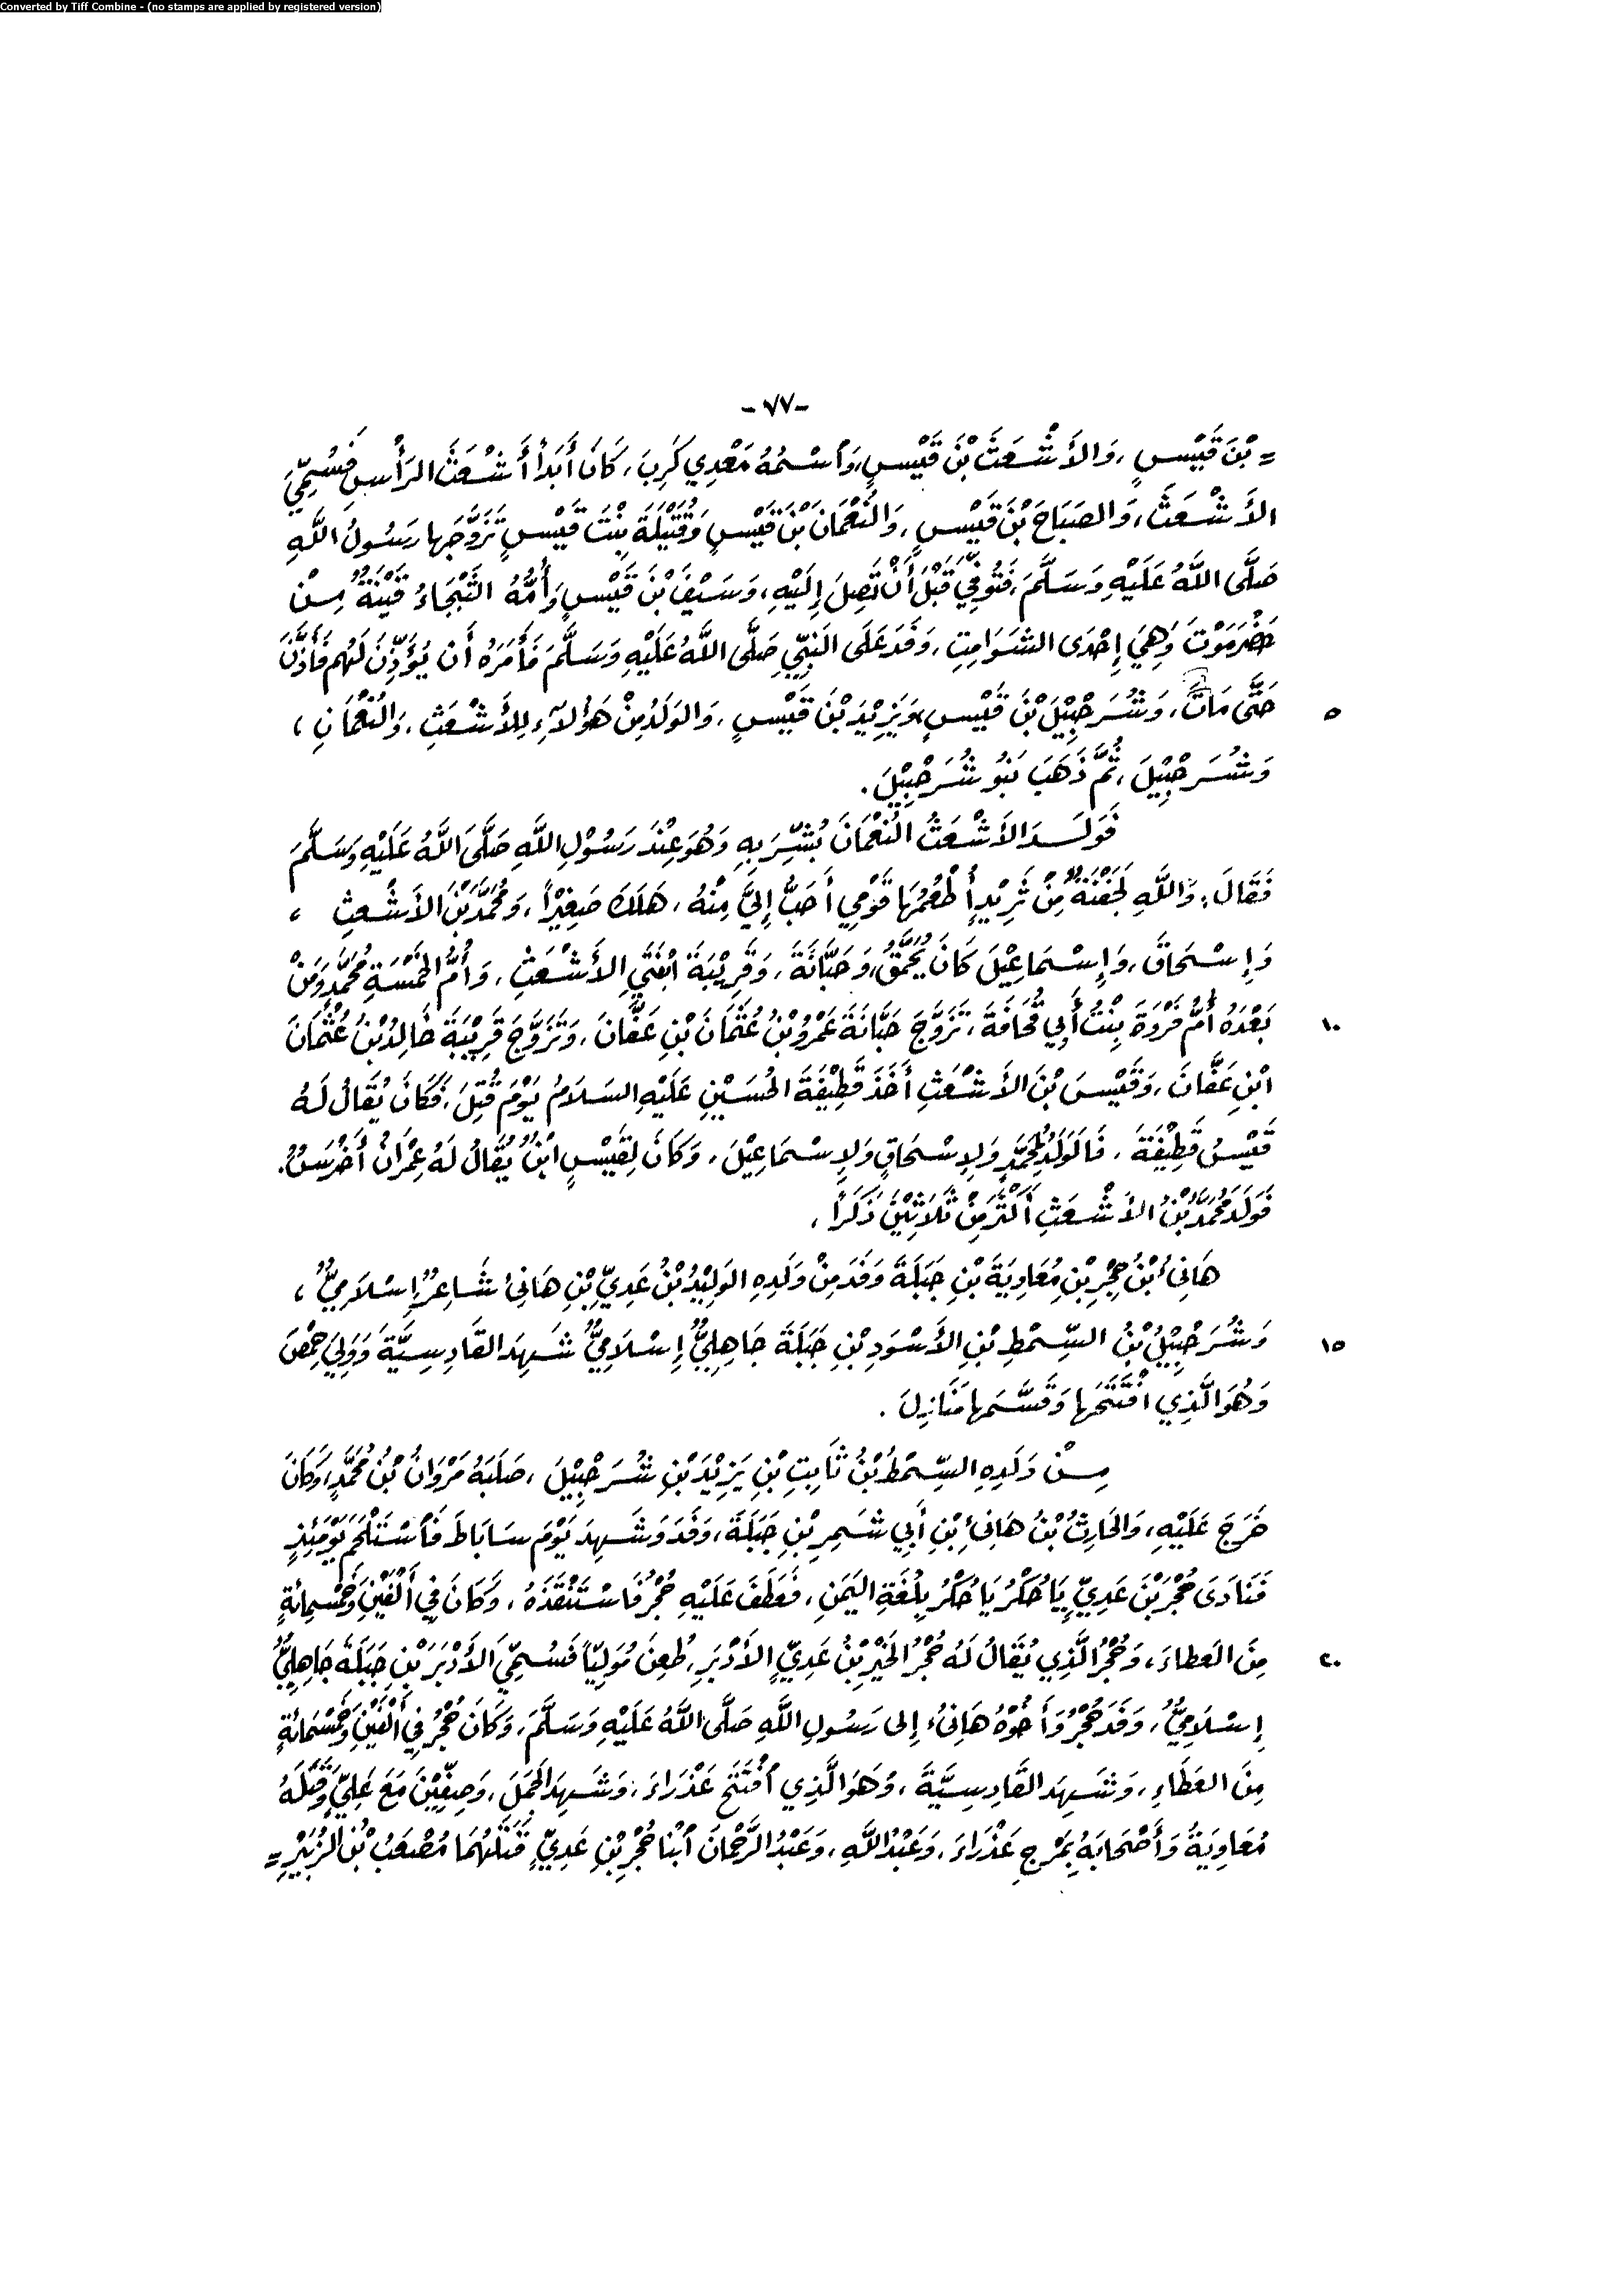 Converted by Tiff Combine - (no stamps are applied by registered version)
-٧٧-
= بْنَ قَيْسٍ، وَالأَشْعَثَ بْنَ قَيْسٍ، وَاسْمُهُ مَعْدِي كَرِبَ، كَانَ أَبَداً أَشْعَثَ الرَأْسِ فَسُمِّيَ
الأَشْعَثَ، وَالصَبَاحَ بْنَ قَيْسٍ، وَالنُعْمَانَ بْنَ قَيْسٍ وَقُتَيْلَةَ بِنْتَ قَيْسٍ تَزَوَّجَها رَسُولُ اللَّهِ
صَلَّى اللَّهُ عَلَيْهِ وَسَلَّمَ، فَتُوفِّيَ قَبْلَ أَنْ تَصِلَ إِلَيْهِ، وَسَيْفَ بْنَ قَيْسٍ وَأُمُّهُ الثَّبْجَاءُ قَيْنَةٌ مِنْ
حَضْرَمَوْتَ وَهِيَ إِحْدَى الشَوَامِتِ، وَفَدَ عَلَى النَبِيِّ صَلَّى اللَّهُ عَلَيْهِ وَسَلَّمَ فَأَمَرَهُ أَن يُؤَذِّنَ لَهُم فَأَذَّنَ
٥ حَتَّى مَاتَ، وَشُرَحْبِيْلَ بْنَ قَيْسٍ، وَيَزِيْدَ بْنَ قَيْسٍ، وَالوَلَدُ مِنْ هَؤُلآءِ لِلأَشْعَثِ، وَالنُعْمَانِ،
وَشُرَحْبِيْلَ، ثُمَّ ذَهَبَ بَنُو شُرَحْبِيْلَ.
فَوَلَدَ الأَشْعَثُ النُعْمَانَ بُشِّرَ بِهِ وَهُوَ عِنْدَ رَسُوْلِ اللَّهِ صَلَّى اللَّهُ عَلَيْهِ وَسَلَّمَ
فَقَالَ: وَاللَّهِ لَجَفْنَةٌ مِنْ ثَرِيْدٍ أُطْعُمُهَا قَوْمِي أَحَبُّ إِلَيَّ مِنْهُ، هَلَكَ صَغِيْراً، وَمُحَمَّدَ بْنَ الأَشْعَثِ،
وَإِسْحَاقَ، وَإِسْمَاعِيْلَ كَانَ يُحَمَّقُ، وَحَبَّانَةَ، وَقَرِيْبَةَ ابْنَتَيِ الأَشْعَثِ، وَأُمُّ الخَمْسَةِ مُحَمَّدٍ وَمَنْ
١٠ بَعْدَهُ أُمُّ فَرْوَةَ بِنْتُ أَبِي قُحَافَةَ، تَزَوَّجَ حَبَّانَةَ عَمْرُو بْنُ عُثْمَانَ بْنِ عَفَّانَ، وَتَزَوَّجَ قَرِيْبَةَ خَالِدُ بْنُ عُثْمَانَ
ابْنِ عَفَّانَ، وَقَيْسَ بْنَ الأَشْعَثِ أَخَذَ قَطِيْفَةَ الحُسَيْنِ عَلَيْهِ السَلاَمُ يَوْمَ قُتِلَ، فَكَانَ يُقَالُ لَهُ
قَيْسُ قَطِيْفَةَ، فَالوَلَدُ لِمُحَمَّدٍ وَلِإِسْحَاقٍ وَلِإِسْمَاعِيْلَ، وَكَانَ لِقَيْسٍ ابْنٌ يُقَالُ لَهُ عِمْرَانُ أَخْرَسُ.
فَوَلَدَ مُحَمَّدُ بْنُ الأَشْعَثِ أَكْثَرَ مِنْ ثَلاَثِيْنَ ذَكَراً،
هَانِئُ بْنُ حُجْرِ بْنِ مُعَاوِيَةَ بْنِ جَبَلَةَ وَفَدَ مِنْ وَلَدِهِ الوَلِيْدُ بْنُ عَدِيِّ بْنِ هَانِئٍ شَاعِرٌ إِسْلاَمِيٌّ،
١٥ وَشُرَحْبِيْلُ بْنُ السِّمْطِ بْنِ الأَسْوَدِ بْنِ جَبَلَةَ جَاهِلِيٌّ إِسْلاَمِيٌّ شَهِدَ القَادِسِيَّةَ وَوَلِيَ حِمْصَ
وَهُوَ الَّذِي افْتَتَحَها وَقَسَّمَها مَنَازِلَ.
مِنْ وَلَدِهِ السِّمْطُ بْنُ ثَابِتِ بْنِ يَزِيْدَ بْنِ شُرَحْبِيْلَ، صَلَبَهُ مَرْوَانُ بْنُ مُحَمَّدٍ، وَكَانَ
خَرَجَ عَلَيْهِ، وَالحَارِثُ بْنُ هَانِئِ بْنِ أَبِي شَمِرِ بْنِ جَبَلَةَ، وَفَدَ وَشَهِدَ يَوْمَ سَابَاطَ فَاسْتَلْحَمَ يَوْمَئِذٍ
فَنَادَى حُجْرَ بْنَ عَدِيٍّ يَا حُكْرُ يَا حُكْرُ بِلُغَةِ اليَمَنِ، فَعَطَفَ عَلَيْهِ حُجْرُ فَاسْتَنْقَذَهُ، وَكَانَ فِي أَلْفَيْنِ وَخَمْسِمِائَةٍ
٢٠ مِنَ العَطَاءَ، وَحُجْرُ الَّذِي يُقَالُ لَهُ حُجْرُ الخَيْرِ بْنُ عَدِيٍّ الأَدْبَرِ، طُعِنَ مُوَلِيّاً فَسُمِّيَ الأَدْبَرَ بْنِ جَبَلَةَ جَاهِلِيٌّ
إِسْلاَمِيٌّ، وَفَدَ حُجْرُ وَأَخُوْهُ هَانِئُ إِلى رَسُولِ اللَّهِ صَلَّى اللَّهُ عَلَيْهِ وَسَلَّمَ، وَكَانَ حُجْرُ فِي أَلْفَيْنِ وَخَمْسَمائَةٍ
مِنَ العَطَاءِ، وَشَهِدَ القَادِسِيَّةَ، وَهُوَ الَّذِي افْتَتَحَ عَذْرَاءَ، وَشَهِدَ الجَمَلَ، وَصِفِّيْنَ مَعَ عَلِيٍّ، وَقَتَلَهُ
مُعَاوِيَةُ وَأَصْحَابَهُ بِمَرْجِ عَذْرَاءَ، وَعَبْدُ اللَّهِ، وَعَبْدُ الرَّحْمَانَ ابْنَا حُجْرِ بْنِ عَدِيٍّ قَتَلَهُمَا مُصْعَبُ بْنُ الزُبَيْرِ =